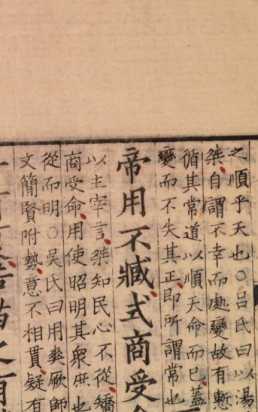 之順乎天也○呂氏曰以湯
桀自謂不幸而處變故有慙
循其常道以順天命而已蓋
變而不失其正即所謂常也
帝用不臧式商受命
以主宰言桀知民心不從矯
商受命用使昭明其衆庶也
從而明○吳氏曰用爽厥師
文簡賢附勢意不相貫疑有